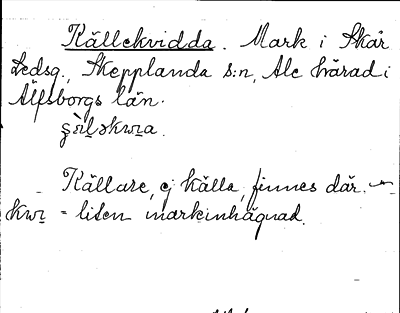 Källekvidda. Mark i Skår
Ledsg., Skepplanda s:n, Ale härad i
Älfsborgs län.
Källare, ej källa, finnes där. –
kwı = liten markinhägnad.